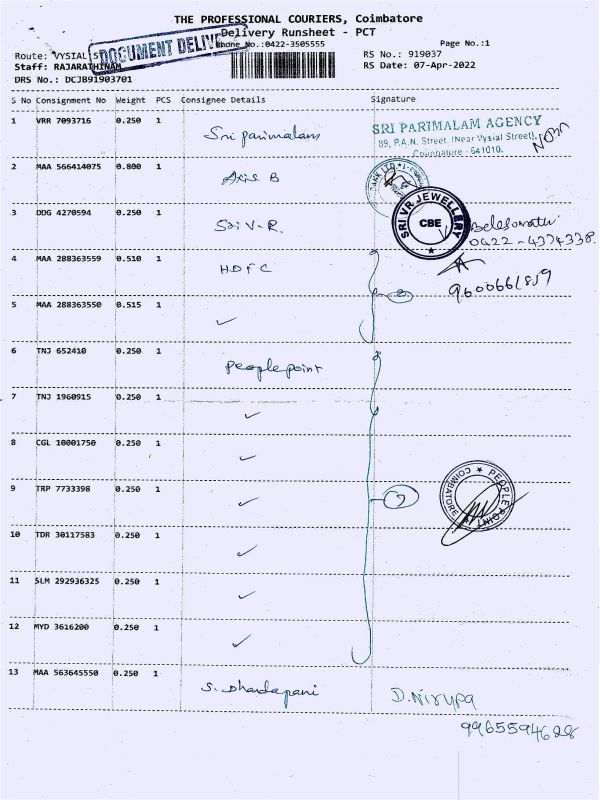 THE PROFESSIONAL COURIERS, Coimbatore
Delivery Runsheet - PCT
Phone No.:0422-3505555
Page No.:1
Route: VYSIAL S
DOCUMENT DELIVE
RS No.: 919037
Staff: RAJARATHINAM
RS Date: 07-Apr-2022
DRS No.: DCJB91903701
S No Consignment No Weight PCS Consignee Details Signature
1 VRR 7093716 0.250 1 Sri parimalam
SRI PARIMALAM AGENCY
89, P.A.N. Street, (Near Vysial Street),
Coimbatore - 641010.
2 MAA 566414075 0.800 1 Axis B
BANK LTD
3 DDG 4270594 0.250 1 Sri V-R.
SRI VR JEWELLERY
CBE
0422-4374338.
4 MAA 288363559 0.510 1 HDFC
2
9600661859
5 MAA 288363550 0.515 1 ✓
6 TNJ 652410 0.250 1 Peoplepoint
7 TNJ 1960915 0.250 1 ✓
8 CGL 10001750 0.250 1 ✓
9 TRP 7733398 0.250 1 ✓
7
PEOPLE POINT
COIMBATORE
10 TDR 30117583 0.250 1 ✓
11 SLM 292936325 0.250 1 ✓
12 MYD 3616200 0.250 1 ✓
13 MAA 563645550 0.250 1 S. Dhandapani
D. Nirupa
9965594628